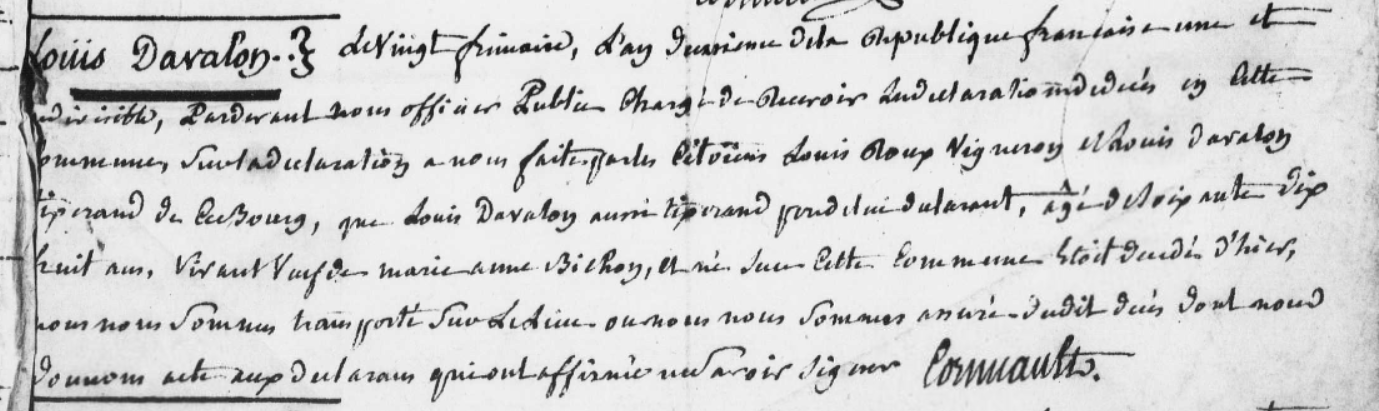 Louis Davalon. Le vingt frimaire, L'an deuxieme dela Republique francaise une et
indivisible, Pardevant nous officier Public Chargé de Recevoir La declaration dedecés en Cette
Commune, Sur La declaration a nous faite par les Citoiens Louis Roux Vigneron et Louis Davalon
tixerand de Ce Bourg, que Louis Davalon aussi tixerand pere delui declarant, agé de Soixante dix
huit ans, vivant Veuf de marie anne Bichon, et né Sur Cette Commune Etoit decedé d'hier,
nous nous Sommes transporté Sur Le Lieu ou nous nous Sommes assuré dudit decés dont nous
donnons acte aux declarans qui ont affirmé ne Savoir Signer Cornuault.